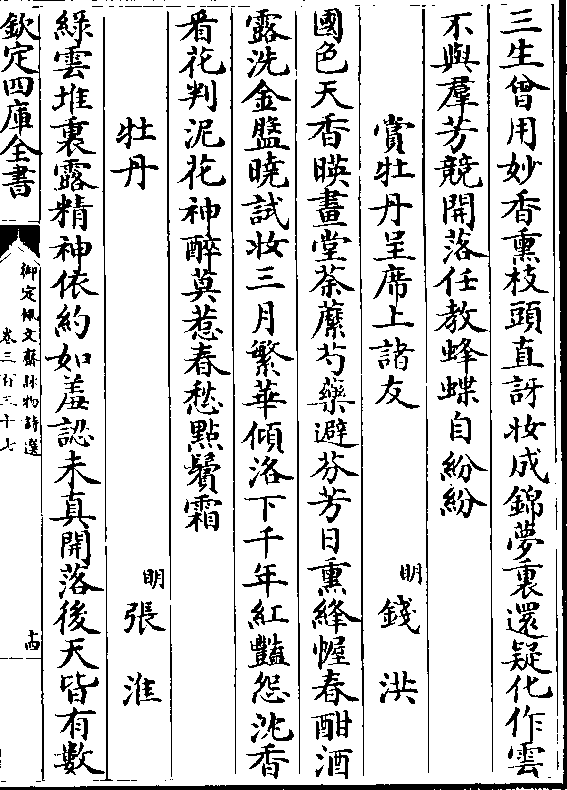 三生曾用妙香熏枝頭直訝妝成錦夢裏還疑化作雲
不與羣芳競開落任教蜂蝶自紛紛
賞牡丹呈席上諸友
明
錢洪
國色天香暎畫堂荼蘼芍藥避芬芳日熏絳幄春酣酒
露洗金盤曉試妝三月繁華傾洛下千年紅豔怨沈香
看花判泥花神醉莫惹春愁點鬢霜
牡丹
明
張淮
綠雲堆裏露精神依約如羞認未真開落後天皆有數
欽定四庫全書
御定佩文齋詠物詩選
卷三百三十七
十四